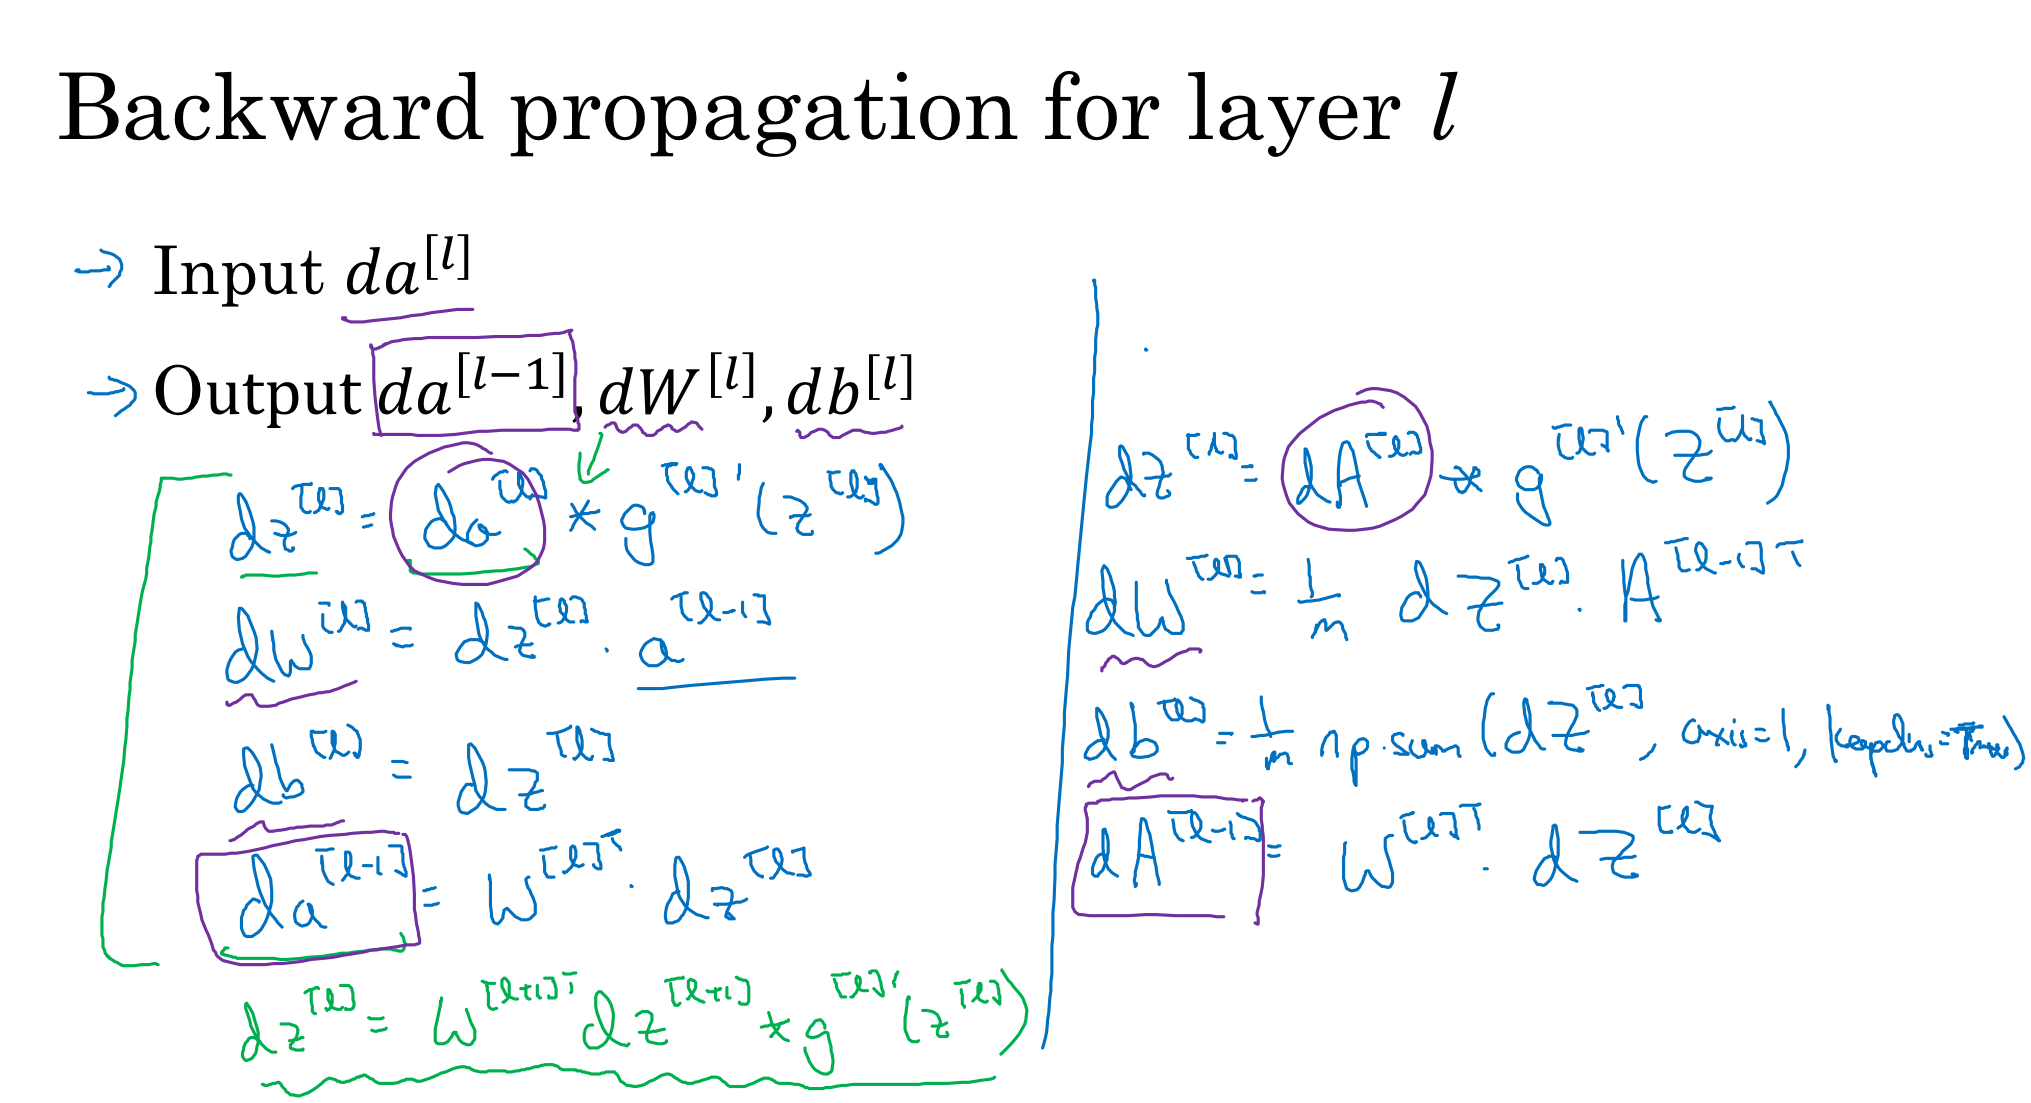 Backward propagation for layer l
→ Input da^[l]
→ Output da^[l-1], dW^[l], db^[l]
dz^[l] = da^[l] * g^[l]'(z^[l])
dW^[l] = dz^[l] · a^[l-1]
db^[l] = dz^[l]
da^[l-1] = W^[l]T · dz^[l]
dz^[l] = W^[l+1]T dz^[l+1] * g^[l]'(z^[l])
dZ^[l] = dA^[l] * g^[l]'(Z^[l])
dW^[l] = 1/m dZ^[l] · A^[l-1]T
db^[l] = 1/m np.sum(dZ^[l], axis=1, keepdims=True)
dA^[l-1] = W^[l]T · dZ^[l]